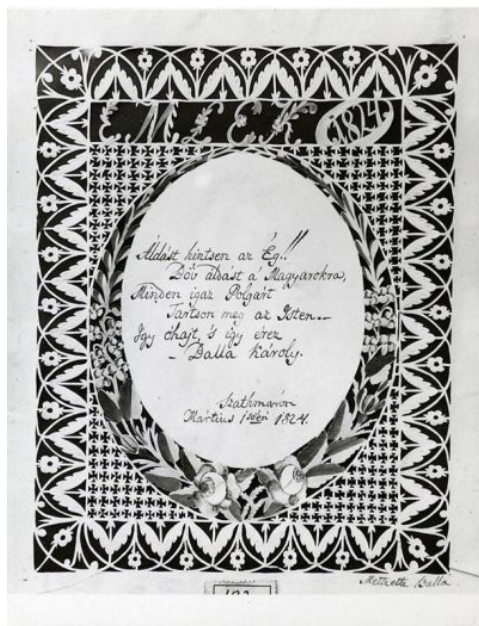 E. M. L. E. K. 1824
Áldást hintsen az Ég!!
Bőv áldást a' Magyarokra,
Minden igaz Polgárt
Tartson meg az Isten..
Igy óhajt, 's igy érez
- Balla Károly.
Szathmáron
Mártius 1sőén 1824.
Metzette Balla